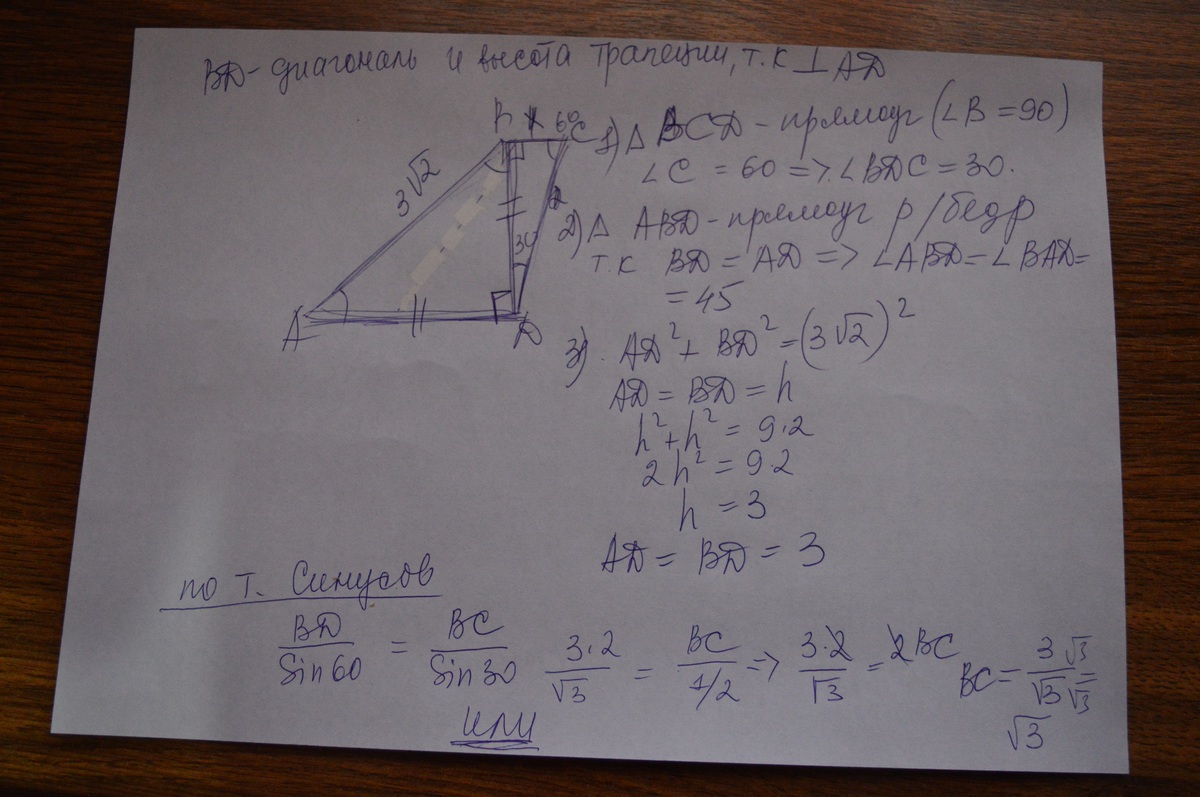 BD - диагональ и высота трапеции, т.к ⊥ AD
B x 60 C
3√2
30
A D
1) Δ BCD - прямоуг (∠B = 90)
∠C = 60 => ∠BDC = 30.
2) Δ ABD - прямоуг р/бедр
т.к BD = AD => ∠ABD = ∠BAD =
= 45
3) . AD² + BD² = (3√2)²
AD = BD = h
h² + h² = 9·2
2h² = 9·2
h = 3
AD = BD = 3
по т. Синусов
BD/Sin60 = BC/Sin30 3·2/√3 = BC/1/2 => 3·2/√3 = 2BC BC = 3√3/√3√3 =
√3
или